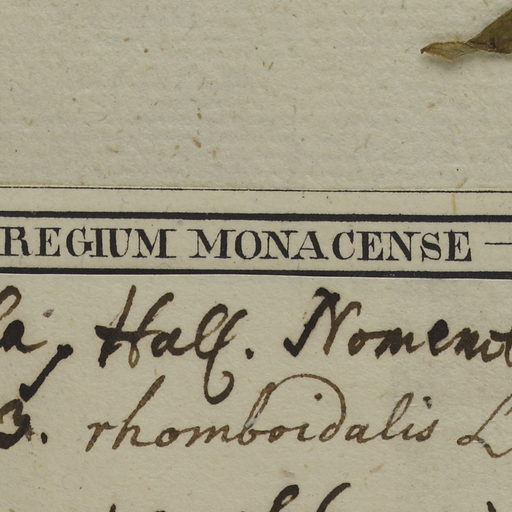 REGIUM MONACENSE —
la, Hall. Nomencl
3. rhomboidalis L